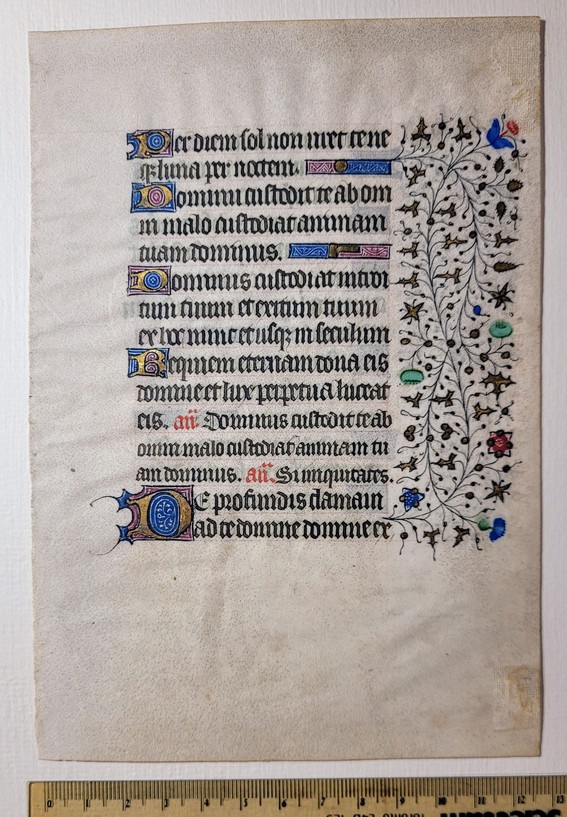 Per diem sol non uret te ne
q luna per noctem.
Dominus custodit te ab om
ni malo custodiat animam
tuam dominus.
Dominus custodiat introi
tum tuum et exitum tuum
ex hoc nunc et usq in seculum
Requiem eternam dona eis
domine et lux perpetua luceat
eis. an. Dominus custodit te ab
omni malo custodiat animam tu
am dominus. an. Si iniquitates.
De profundis clamaui
ad te domine domine ex
0 1 2 3 4 5 6 7 8 9 10 11 12 13